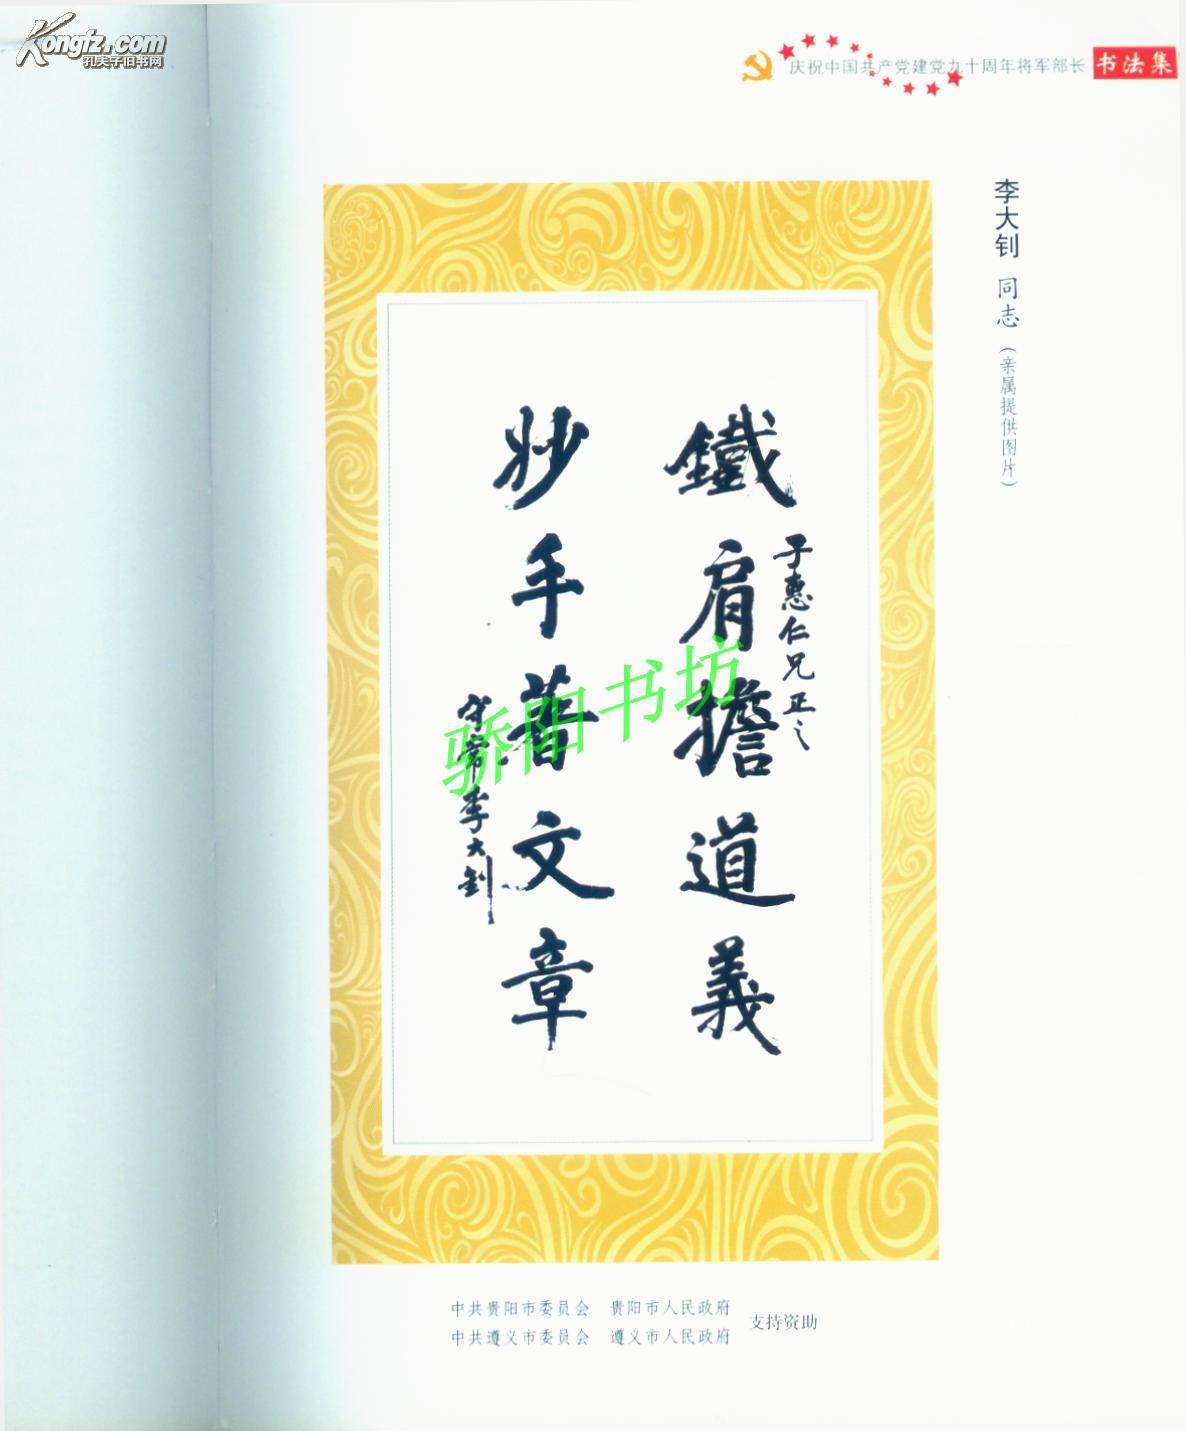 Kongfz.com
孔夫子旧书网
庆祝中国共产党建党九十周年将军部长 书法集
李大钊 同志（亲属提供图片）
子惠仁兄正之
鐵肩擔道義
妙手著文章
守常李大釗
骄阳书坊
中共贵阳市委员会 贵阳市人民政府
中共遵义市委员会 遵义市人民政府
支持资助